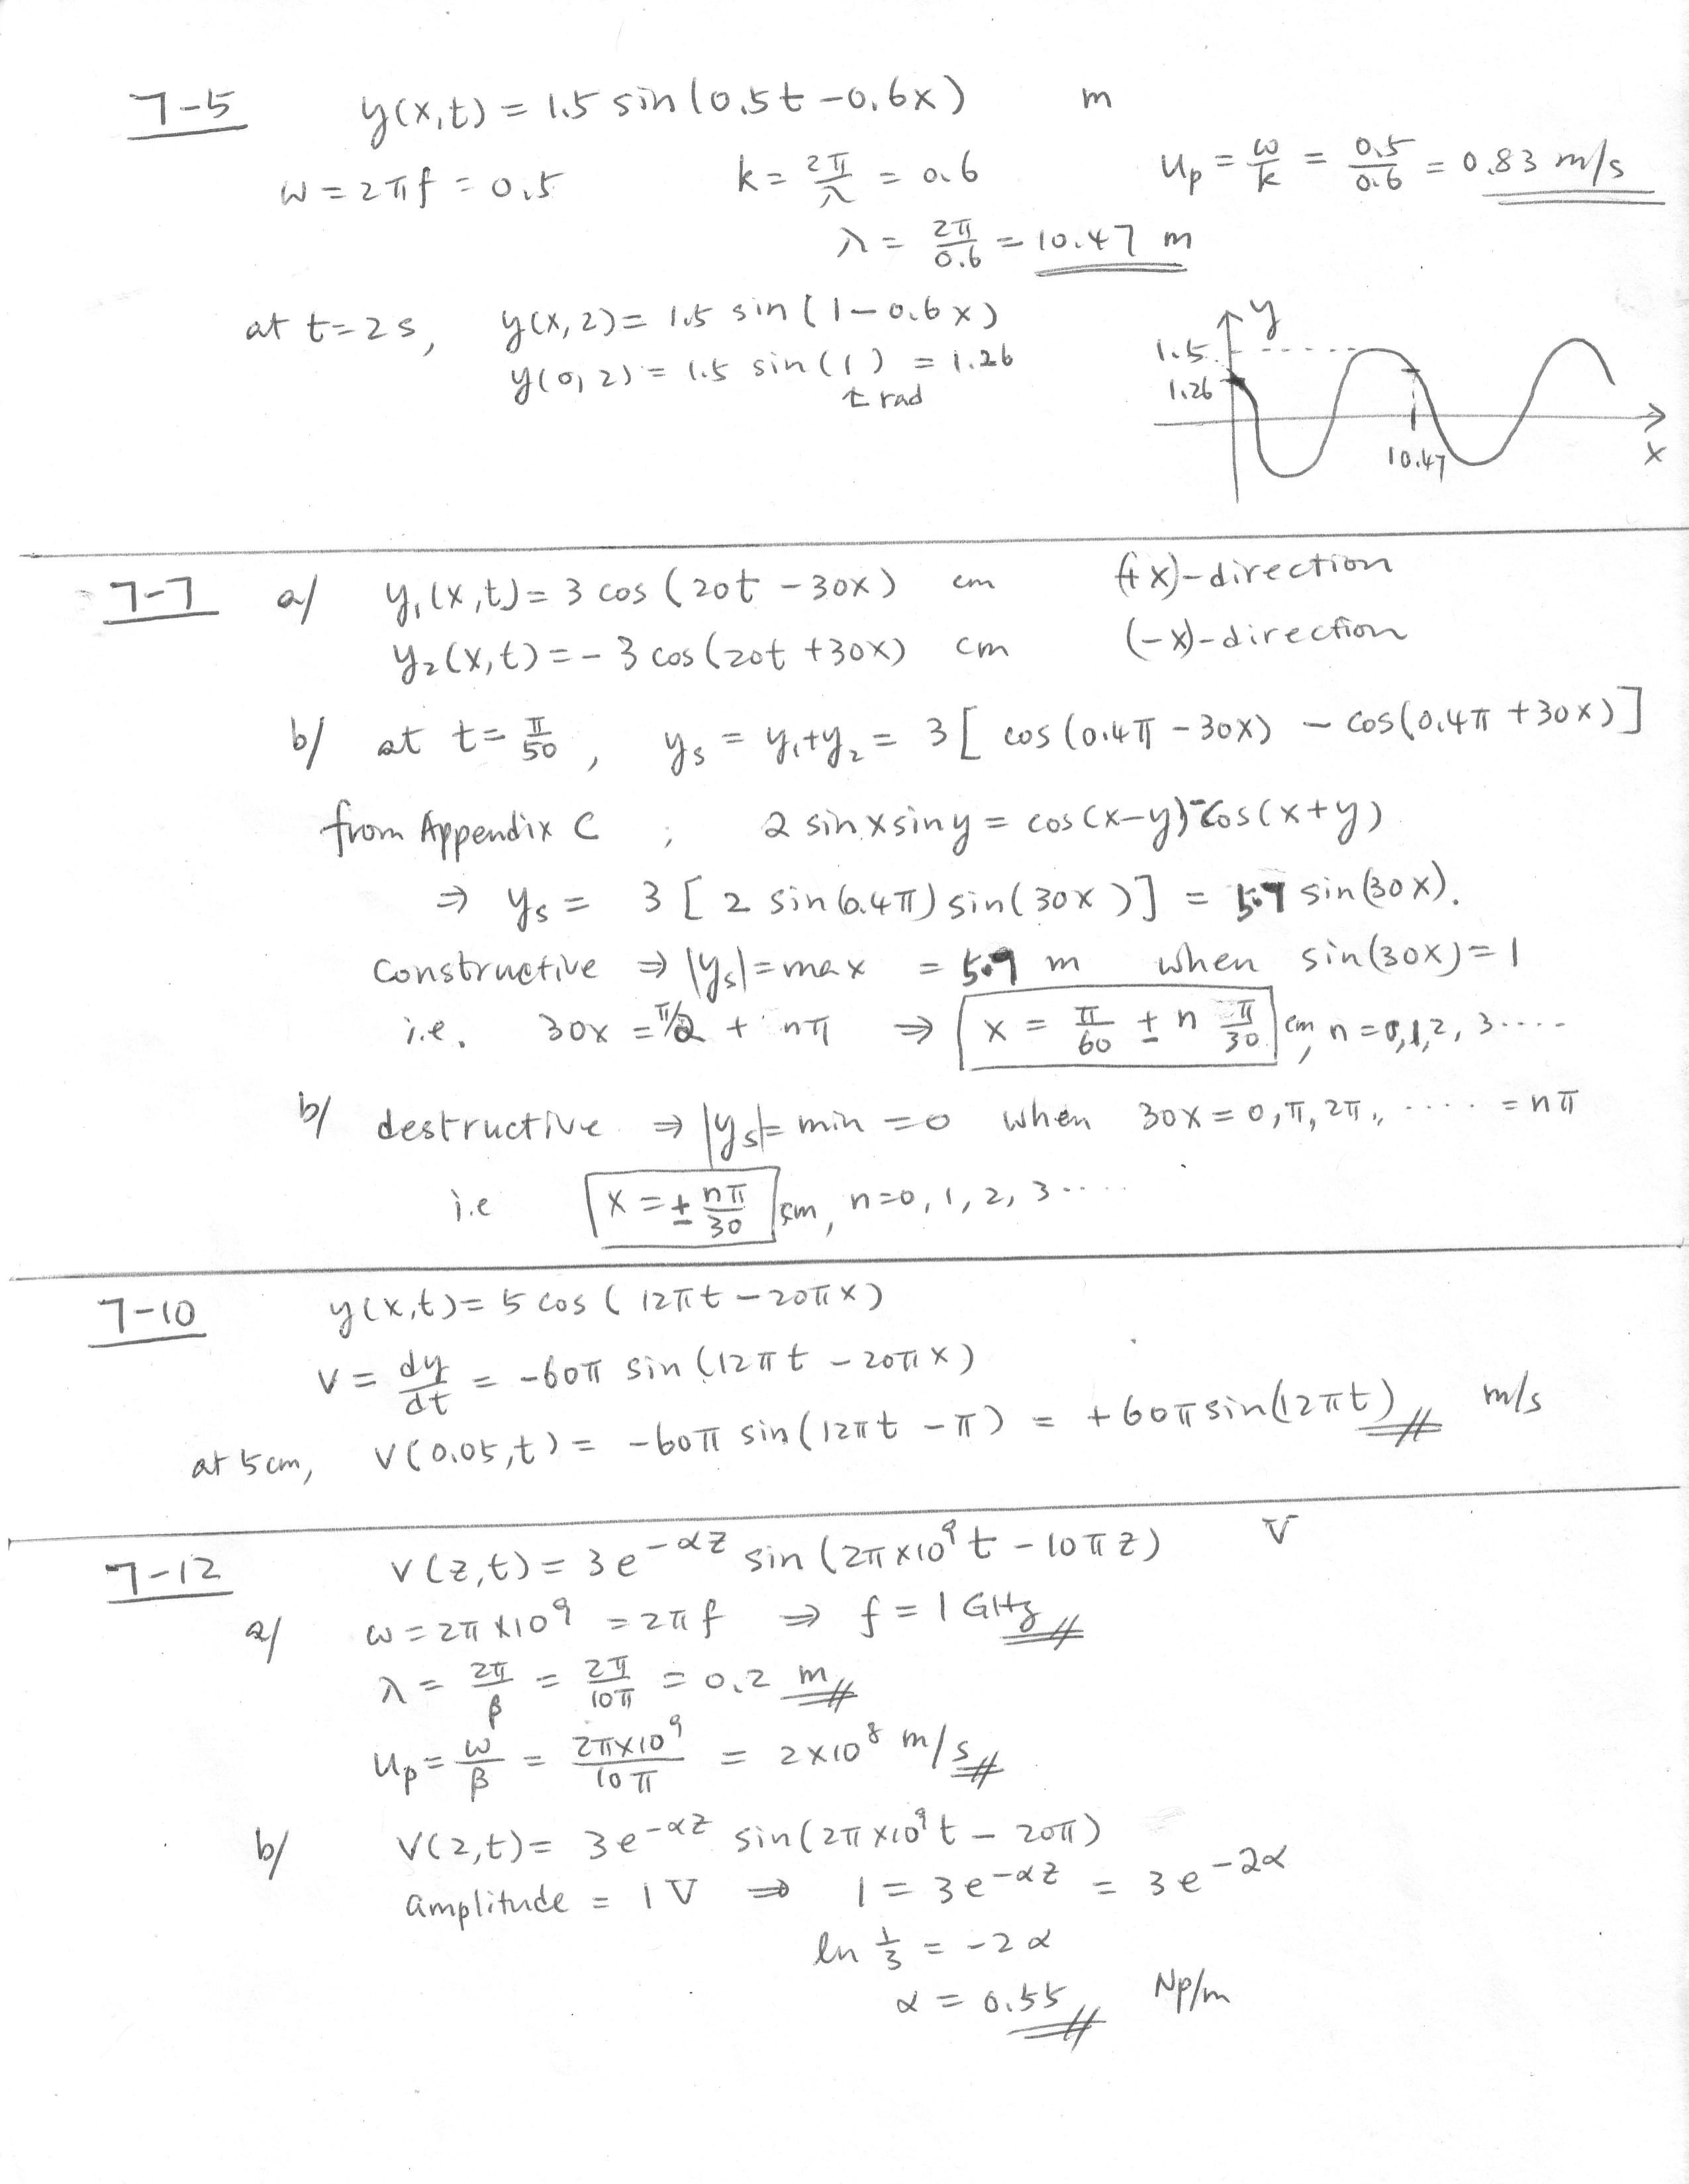 7-5 y(x,t) = 1.5 sin(0.5t - 0.6x) m
ω = 2πf = 0.5 k = 2π/λ = 0.6 u_p = ω/k = 0.5/0.6 = 0.83 m/s
λ = 2π/0.6 = 10.47 m
at t=2s, y(x,2) = 1.5 sin(1-0.6x)
y(0,2) = 1.5 sin(1) = 1.26
rad
y
1.5
1.26
10.47
x
7-7 a/ y₁(x,t) = 3 cos(20t - 30x) cm (+x)-direction
y₂(x,t) = -3 cos(20t + 30x) cm (-x)-direction
b/ at t = π/50, y_s = y₁+y₂ = 3[ cos(0.4π - 30x) - cos(0.4π + 30x)]
from Appendix C ; 2 sin x sin y = cos(x-y) - cos(x+y)
⇒ y_s = 3[ 2 sin(0.4π) sin(30x)] = 5.7 sin(30x).
Constructive ⇒ |y_s| = max = 5.9 m when sin(30x) = 1
i.e. 30x = π/2 + nπ ⇒ x = π/60 ± n π/30 cm, n = 0,1,2,3....
b/ destructive ⇒ |y_s| = min = 0 when 30x = 0, π, 2π, .... = nπ
i.e x = ± nπ/30 cm, n=0,1,2,3....
7-10 y(x,t) = 5 cos(12πt - 20πx)
v = dy/dt = -60π sin(12πt - 20πx)
at 5cm, v(0.05,t) = -60π sin(12πt - π) = +60π sin(12πt) m/s
7-12 v(z,t) = 3e^{-αz} sin(2π×10⁹t - 10πz) V
a/ ω = 2π×10⁹ = 2πf ⇒ f = 1 GHz
λ = 2π/β = 2π/10π = 0.2 m
u_p = ω/β = 2π×10⁹/10π = 2×10⁸ m/s
b/ V(2,t) = 3e^{-αz} sin(2π×10⁹t - 20π)
amplitude = 1 V ⇒ 1 = 3e^{-αz} = 3e^{-2α}
ln 1/3 = -2α
α = 0.55 Np/m